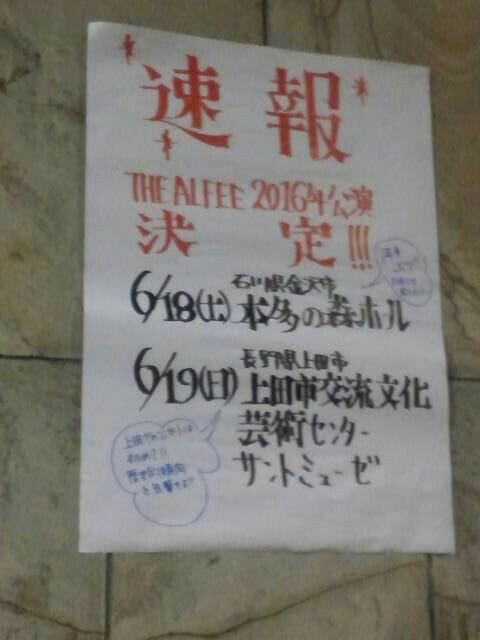 速報
THE ALFEE 2016年公演
決定!!!
石川県金沢市
6/18(土) 本多の森ホール
長野県上田市
6/19(日) 上田市交流文化
芸術センター
サントミューゼ
上田でのコンサートは
初めて!!